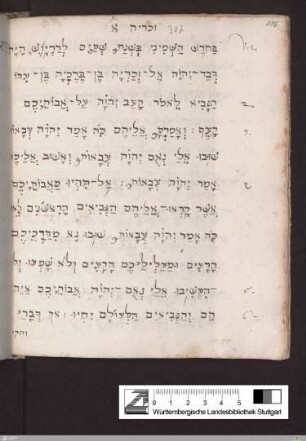 זכריה א
בַּחֹדֶשׁ הַשְּׁמִינִי בִּשְׁנַת שְׁתַּיִם לְדָרְיָוֶשׁ הָיָה
דְבַר־יְהוָה אֶל־זְכַרְיָה בֶּן־בֶּרֶכְיָה בֶּן־עִדּוֹ
הַנָּבִיא לֵאמֹר קָצַף יְהוָה עַל־אֲבוֹתֵיכֶם
קָצֶף׃ וְאָמַרְתָּ אֲלֵיהֶם כֹּה אָמַר יְהוָה צְבָאוֹת
שׁוּבוּ אֵלַי נְאֻם יְהוָה צְבָאוֹת וְאָשׁוּב אֲלֵיכֶם
אָמַר יְהוָה צְבָאוֹת׃ אַל־תִּהְיוּ כַאֲבוֹתֵיכֶם
אֲשֶׁר קָרְאוּ־אֲלֵיהֶם הַנְּבִיאִים הָרִאשֹׁנִים
כֹּה אָמַר יְהוָה צְבָאוֹת שׁוּבוּ נָא מִדַּרְכֵיכֶם
הָרָעִים וּמַעַלְלֵיכֶם הָרָעִים וְלֹא שָׁמְעוּ וְלֹא
הִקְשִׁיבוּ אֵלַי נְאֻם־יְהוָה׃ אֲבוֹתֵיכֶם אַיֵּה
הֵם וְהַנְּבִיאִים הַלְעוֹלָם יִחְיוּ׃ אַךְ דְּבָרַי
וחקי
0 1 2 3 4 5
Württembergische Landesbibliothek Stuttgart